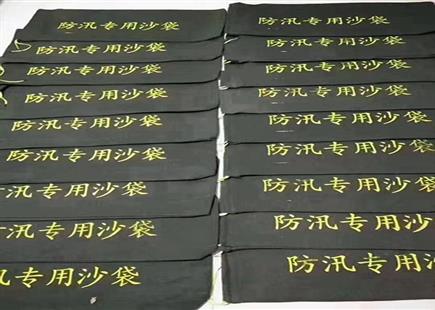 防汛专用沙袋
防汛专用沙袋
防汛专用沙袋
防汛专用沙袋
防汛专用沙袋
防汛专用沙袋
防汛专用沙袋
汛专用沙袋
汛专用沙袋
防汛专用沙袋
防汛专用沙袋
防汛专用沙袋
防汛专用沙袋
防汛专用沙袋
防汛专用沙袋
防汛专用沙袋
防汛专用沙袋
防汛专用沙